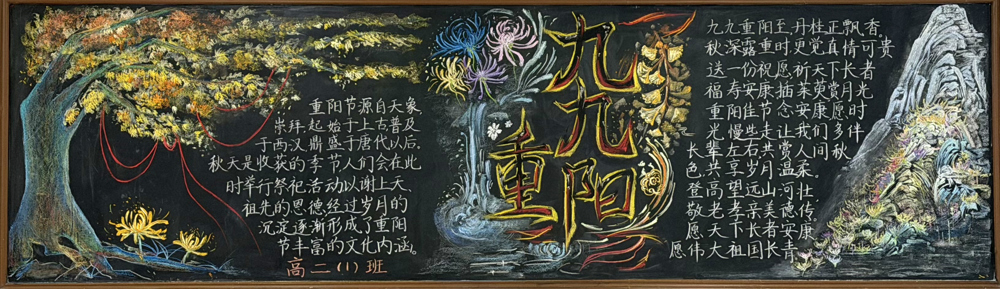 重阳节源自天象
崇拜,起始于上古,普及
于西汉,鼎盛于唐代以后,
秋天是收获的季节人们会在此
时举行祭祀活动以谢上天、
祖先的恩德经过岁月的
沉淀逐渐形成了重阳
节丰富的文化内涵。
高二(1)班
九九重阳
九九重阳至,丹桂正飘香,
秋深露重时更觉真情可贵
送一份祝愿祈天下长者
福寿安康插茱萸赏月光
重阳佳节念安康愿时
光慢些走让我们多伴
长辈左右共赏人间秋
色共享岁月温柔。
登高望远山河壮
敬老孝亲美德传
愿天下长者安康
愿伟大祖国长青